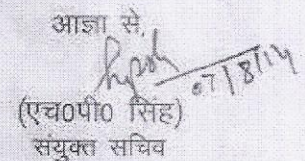 आज्ञा से,
07/8/14
(एच0पी0 सिंह)
संयुक्त सचिव